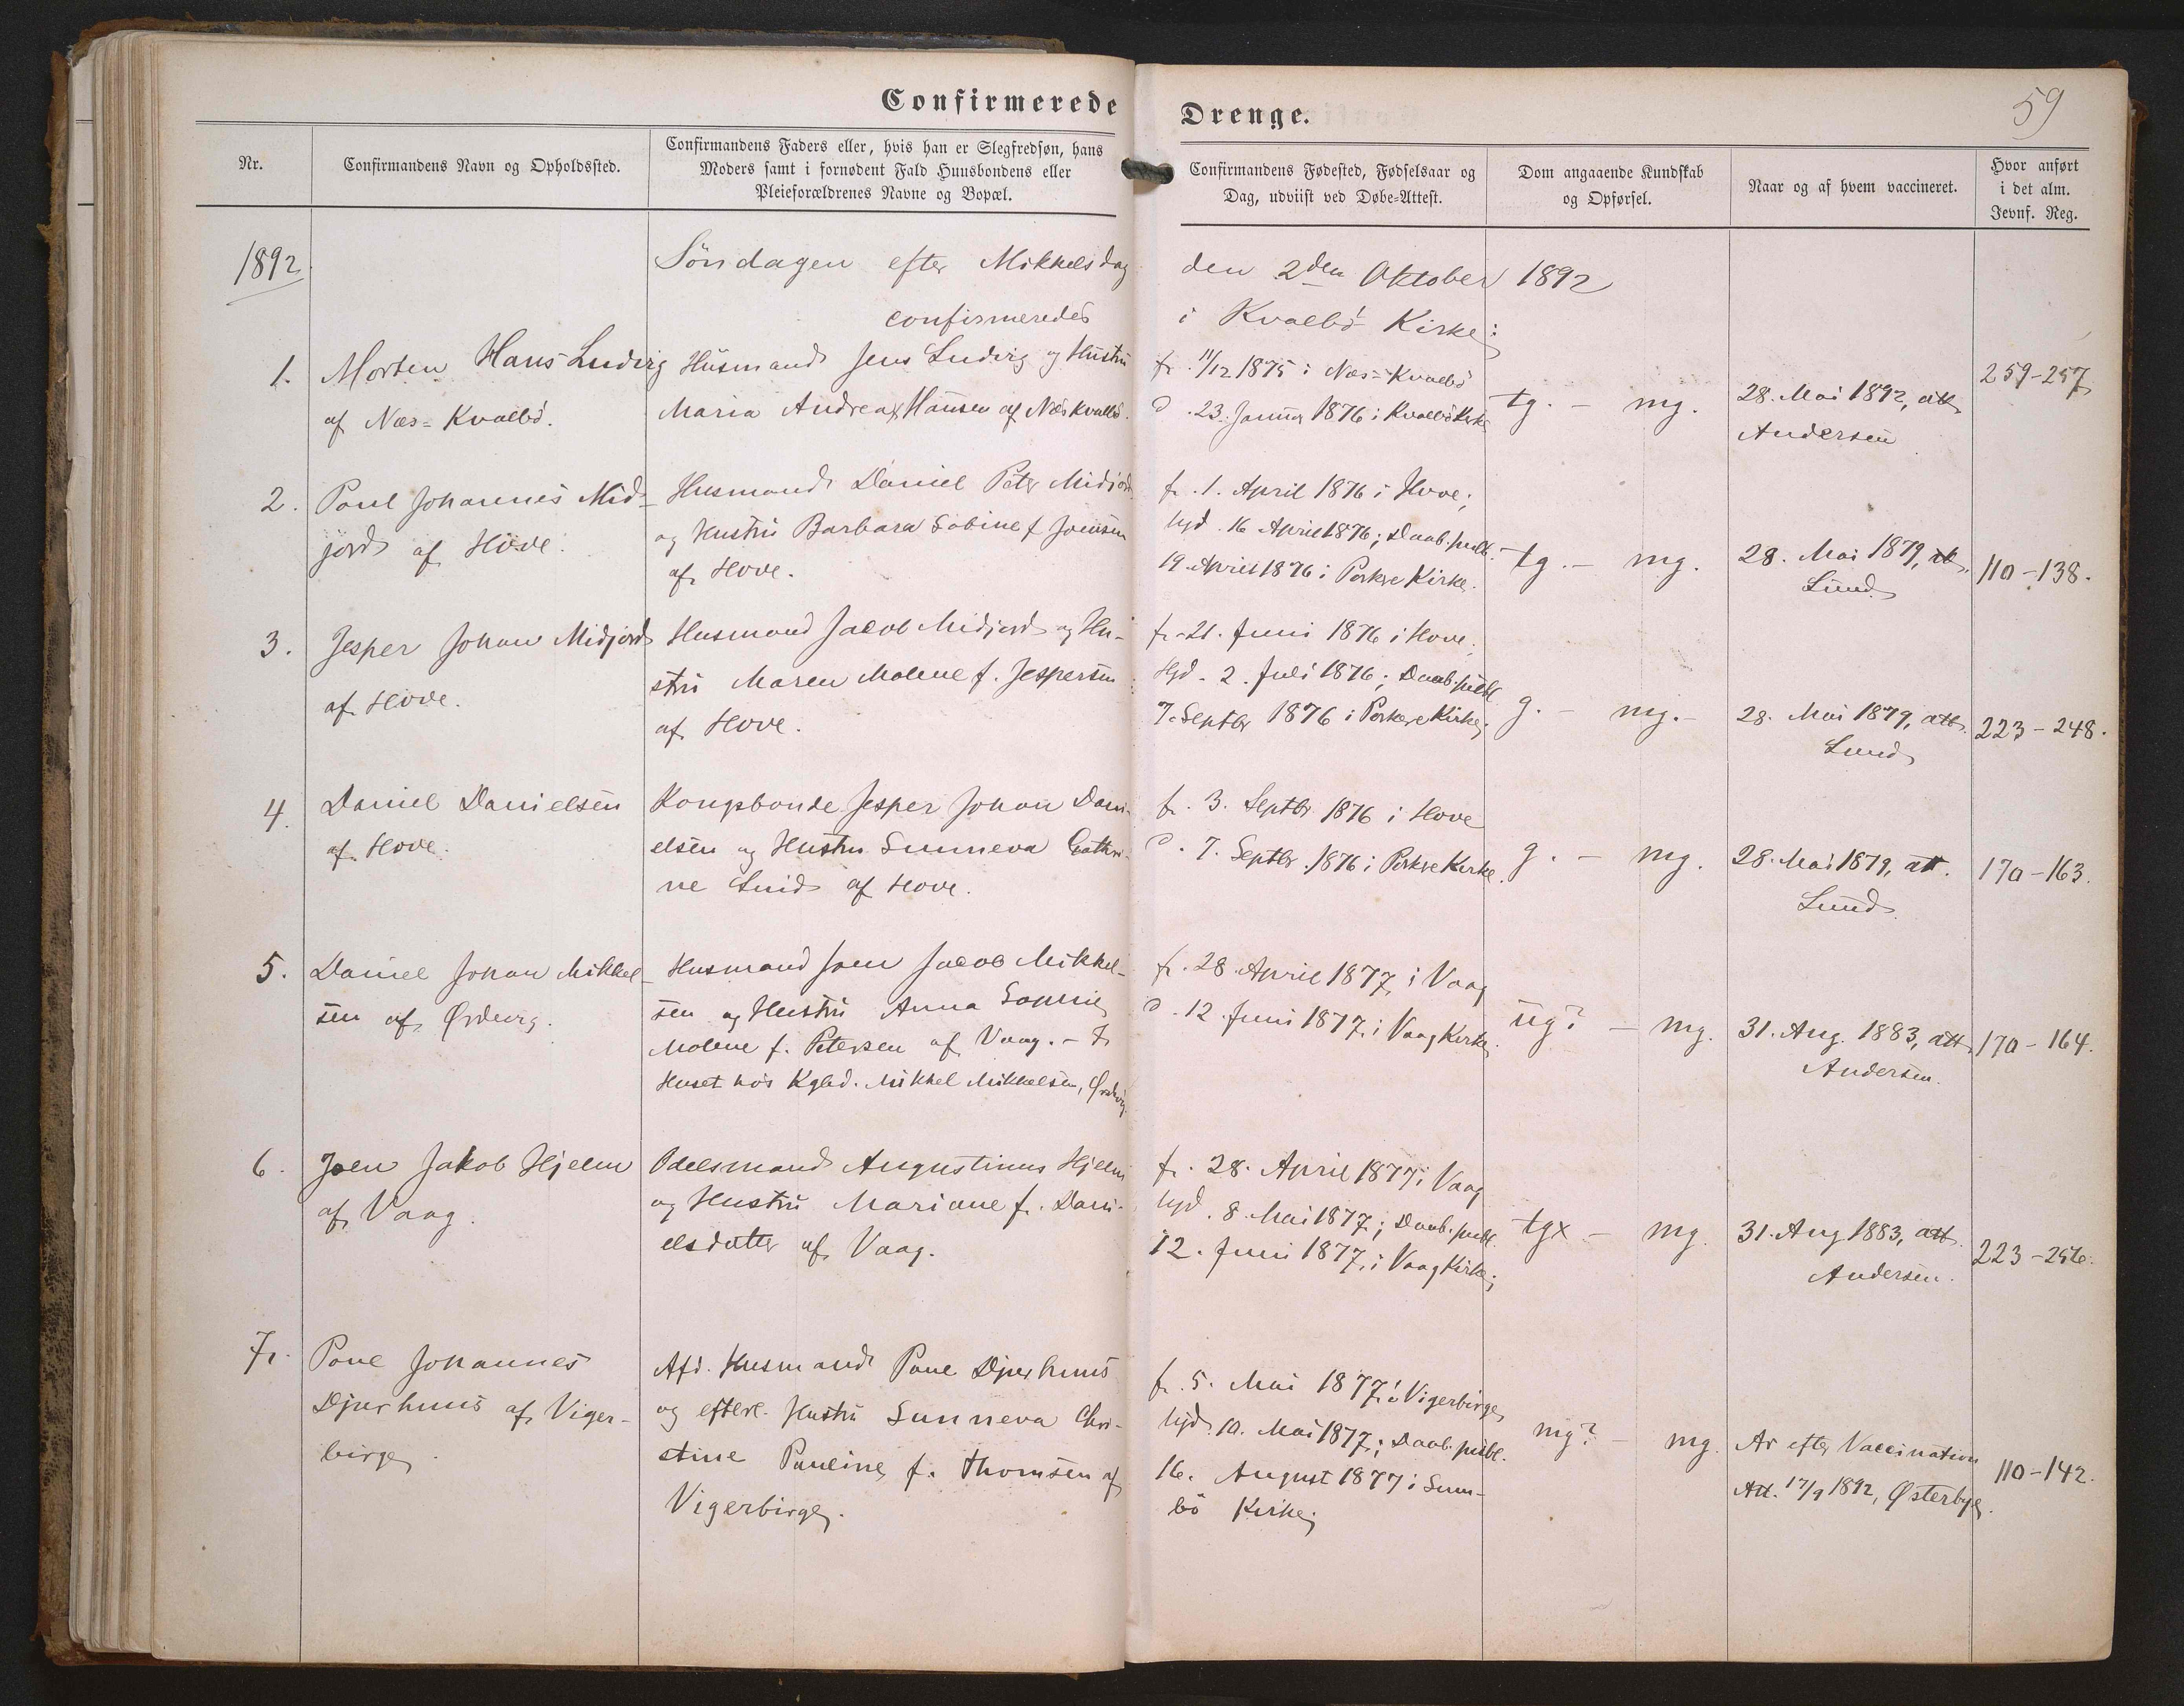 Confirmerede
Drenge.
59
Nr.
Confirmandens Navn og Opholdssted.
Confirmandens Faders eller, hvis han er Slegfredsøn, hans
Moders samt i fornødent Fald Huusbondens eller
Pleieforældrenes Navne og Bopæl.
Confirmandens Fødested, Fødselsaar og
Dag, udviist ved Døbe-Attest.
Dom angaaende Kundskab
og Opførsel.
Naar og af hvem vaccineret.
Hvor anført
i det alm.
Jevnf. Reg.
1892
Söndagen efter Mikkelsdag
den 2den Oktober 1892
confirmeredes
i Kvalbö Kirke:
1.
Morten Hans Ludvig
af Næs-Kvalbö.
Husmand Jens Ludvig og Hustru
Maria Andrea f. Hansen af Næs Kvalbö.
f. 11/12 1875 i Næs-Kvalbö
d. 23. Januar 1876 i Kvalbö Kirke
tg. – mg.
28. Mai 1892, att.
Andersen
259-257
2.
Poul Johannes Mid-
jord af Hove.
Husmand Daniel Peter Midjord
og Hustru Barbara Sobine f Joensen
af Hove.
f. 1. April 1876 i Hove;
hjd. 16 April 1876; Daab. publ.
19. April 1876 i Porkere Kirke.
tg. – mg.
28. Mai 1879, att.
Lund
110-138.
3.
Jesper Johan Midjord
af Hove.
Husmand Jacob Midjord og Hu-
stru Maren Malene f. Jespersen
af Hove.
f. 21. Juni 1876 i Hove;
Hjd. 2. Juli 1876; Daab. publ
7. Septbr 1876 i Porkere Kirke;
g. – mg. –
28. Mai 1879, att.
Lund
223-248.
4.
Daniel Danielsen
af Hove.
Kongsbonde Jesper Johan Dani-
elsen og Hustru Sunneva Cathri-
ne Luid af Hove.
f. 3. Septbr 1876 i Hove
d. 7. Septbr. 1876 i Porkere Kirke.
g. – mg.
28. Mai 1879, att.
Lund
170-163.
5.
Daniel Johan Mikkel-
sen af Ørdevig.
Husmand Joen Jacob Mikkel-
sen og Hustru Anna Sophie
Malene f. Petersen af Vaag. – I
Huset hos Kgbd. Mikkel Mikkelsen, Ørdevig.
f. 28 April 1877 i Vaag
d. 12. Juni 1877 i Vaag Kirke.
ug? – mg.
31. Aug. 1883, att.
Andersen.
170-164.
6.
Joen Jakob Hjelm
af Vaag.
Odelsmand Augustinus Hjelm
og Hustru Mariane f. Dani-
elsdatter af Vaag.
f. 28. April 1877 i Vaag
hjd. 8. Mai 1877; Daab. publ.
12. Juni 1877 i Vaag Kirke;
tgx – mg.
31. Aug 1883, att.
Andersen.
223-256.
7.
Poul Johannes
Djurhuus af Viger-
birge.
Afd. Husmand Poul Djurhuus
og efterl. Hustru Sunneva Chri-
stine Pauline f. Thomsen af
Vigerbirge.
f. 5. Mai 1877 i Vigerbirge
hjd. 10. Mai 1877; Daab. publ.
16. August 1877 i Sum-
bö Kirke;
mg? – mg.
Ar efter Vaccination
Att. 17/9 1892, Østerbye.
110-142.